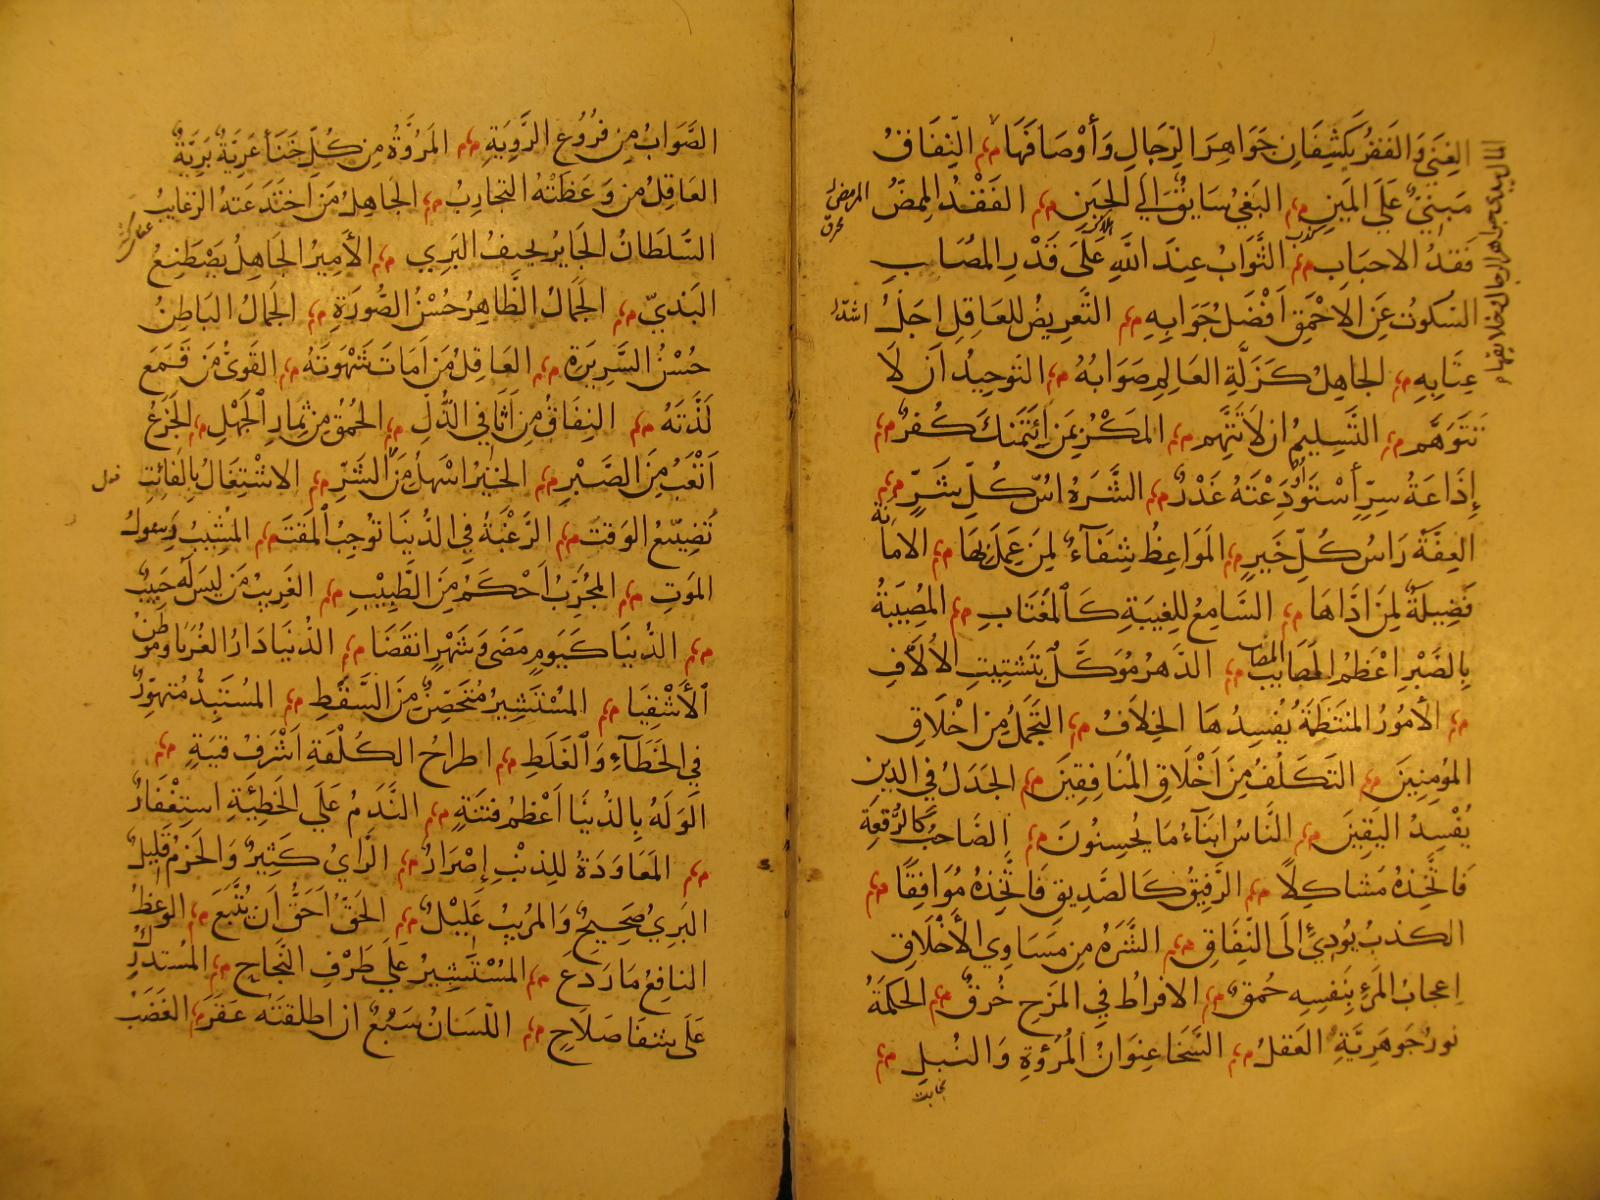 الغِنَي وَالفَقرُ يَكشِفَانِ جَوَاهِرَ الرِّجَالِ وَأَوْصَافَهَا النِّفَاقُ
مَبنِيٌّ عَلَى المَينِ البَغيُ سَايقٌ اِلَي الحَينِ الفَقْدُ المُمِضُّ
فَقدُ الاحبَابِ الثَّوَابُ عِندَ اللَّهِ عَلَى قَدْرِ المُصَابِ
السُكوتُ عَنِ الاحْمَقِ اَفْضَلُ جَوَابِهِ التَّعرِيضُ للعَاقِلِ اَجَلُّ
عِتَابِهِ الجَاهِلُ كَزَلَّةِ العَالِمِ صَوَابُهُ التَوحِيدُ اَن لَا
تَتَوَهَّم التَّسلِيمُ ان لَا تَتَّهِم المَكْرُ بِمَن اِئتَمَنَكَ كُفرٌ
إِذَاعَةُ سِرٍّ أُسْتَوْدِعْتَهُ غَدْرٌ الشَّرَهُ اُسُّ كُلِّ شَرٍّ
العِفَّة رَاسُ كُلِّ خَيرٍ المَوَاعِظُ شِفَآءٌ لِمَن عَمِلَ بِهَا الامَانَة
فَضِيلَةٌ لِمَن ادَّاهَا السَّامِعُ لِلغِيبَةِ كَالمُغتَابِ المُصِيبَةُ
بِالصَّبْرِ اعْظَمُ المَصَايب الدَهرُ مُوَكَّلٌ بِتَشتِيتِ الاُلاَّفِ
الأُمُورُ المُنتَظَمَةُ يُفسِدُهَا الخِلَافُ التَجَمُّلُ مِن اخْلَاقِ
المُومِنِينَ التَكَلُّفُ مِنَ اَخْلَاقِ المُنَافِقِينَ الجَدَلُ فِي الدِين
يُفسِدُ اليَقِينَ النَّاسُ ابنَآءُ مَا يُحسِنُونَ الصَاحبُ كَالرُقعَةِ
فَاتَّخِذهُ مُشَاكِلًا الرَّفِيقُ كَالصَّدِيقِ فَاتَّخِذهُ مُوَافِقًا
الكَذبُ يُودِيّ الَى النِّفَاقِ الشَّرَهُ مِن مَسَاوِي الأَخْلَاقِ
اِعجَابُ المَرءِ بِنَفسِهِ حُمقٌ الافرَاطُ فِي المَزحِ خُرقٌ الحِكمَةُ
نورُ جَوهَرِيَّةِ العَقلِ السَّخَا عِنوَانُ المُرُؤةِ وَالنُبلِ
المال يبدي جواهر الرجال وخلايقها
كذب
المرض
محرق
اشدّ
نجابت
الصَّوَابُ مِن فرُوعِ الرَّوِيَةِ المَرُوَّةُ مِن كُلِّ خَنَأ عَرِيَّةٌ بَرِيَّةٌ
العَاقِلُ مَن وَعَظَتْهُ التجَارِبُ الجَاهِلُ مَن اختَدَعَتهُ الرَغايبُ
السُّلطَانُ الجَايرُ يُخِيفُ البَرِي الأَمِيرُ الجَاهِلُ يَصْطَنِعُ
البَذيّ الجَمَالُ الظَّاهِرُ حُسْنُ الصُّورَةِ الجَمَالُ البَاطِنُ
حُسْنُ السَّرِيرَة العَاقِلُ مَن اَمَاتَ شَهْوَتَهُ القَوىُ مَن قَمَعَ
لَذَّتَهُ النِفَاقُ مِن اَثَافِي الذُّلِ الحُمْقُ مِن ثِمَارِ الجَهْلِ الجَزَعُ
اَتْعَبُ مِنَ الصَّبْرِ الخَيْرُ اسْهَلُ مِنَ الشَرِّ الاشْتِغَالُ بِالفائِتِ
تَضِيّيعُ الوَقت الرَّغْبَةُ فِي الدُّنيَا تُوجِبُ المَقتَ المُشِيبُ رَسُولُ
المَوَتِ المُجَرِّبُ اَحْكَمُ مِنَ الطَّبِيبِ الغَرِيبُ مَن لَيسَ لَهُ حَبِيبٌ
الدُّنيَا كَيَومٍ مَضَى وَشَهْرٍ انقَضَا الدُنيَا دَارُ الغُرَبَا وَمَوطنُ
الأَشْقِيَا المُسْتَشِيرُ مُتَحَصِّنٌ مِنَ السَّقَطِ المُستَبِدُّ مُتهوِّرٌ
فِي الخَطَآءِ وَالغَلَطِ اطراحُ الكُلْفَةِ اَشْرَفُ قنيَةٍ
الوَلَهُ بِالدُنيَا اَعْظَمُ فتنَةٍ النَّدَمُ عَلَى الخَطِيْئَةِ اسْتِغْفَارٌ
المُعَاوَدَةُ لِلذنْبِ إِصْرَارٌ الرَّايُ كَثِيرٌ وَالحَزمُ قَلِيلٌ
البَرِيُ صَحِيحٌ وَالمُرِيبُ عَلِيْلٌ الحَقُّ اَحَقُّ اَن يُتَّبَعَ الوَعظُ
النافِعُ مَا رَدَعَ المُسْتَشِيرُ عَلَي طَرَفِ النَجَاحِ المُستَدركُ
عَلَى شَفَا صَلَاحٍ اللِّسَانُ سَبُعٌ ان اطلقتَه عَقَرَ الغَضَبُ